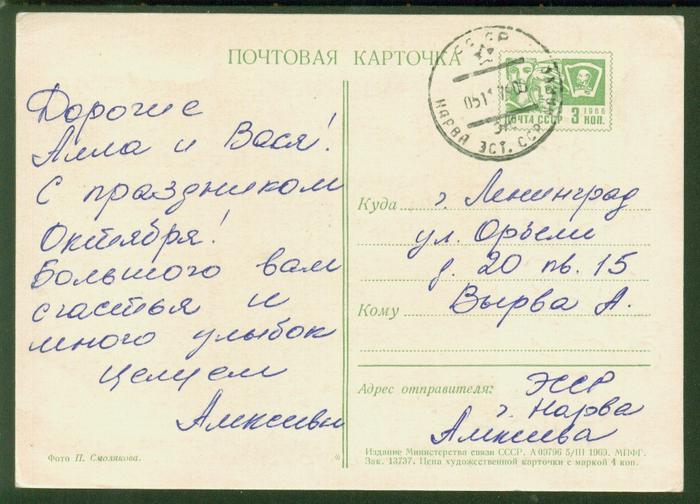 ПОЧТОВАЯ КАРТОЧКА
СССР
НАРВА ЭСТ. ССР
ПОЧТА СССР
1966
3 КОП.
Дорогие
Алла и Вася!
С праздником
Октября!
Большого вам
счастья и
много улыбок
Целуем
Куда
г. Ленинград
ул. Орбели
д. 20 кв. 15
Кому
Вырва А.
Адрес отправителя:
ЭССР
г. Нарва
Фото П. Смолякова.
Издание Министерства связи СССР. А 09796 5/III 1969. МПФГ.
Зак. 13737. Цена художественной карточки с маркой 4 коп.